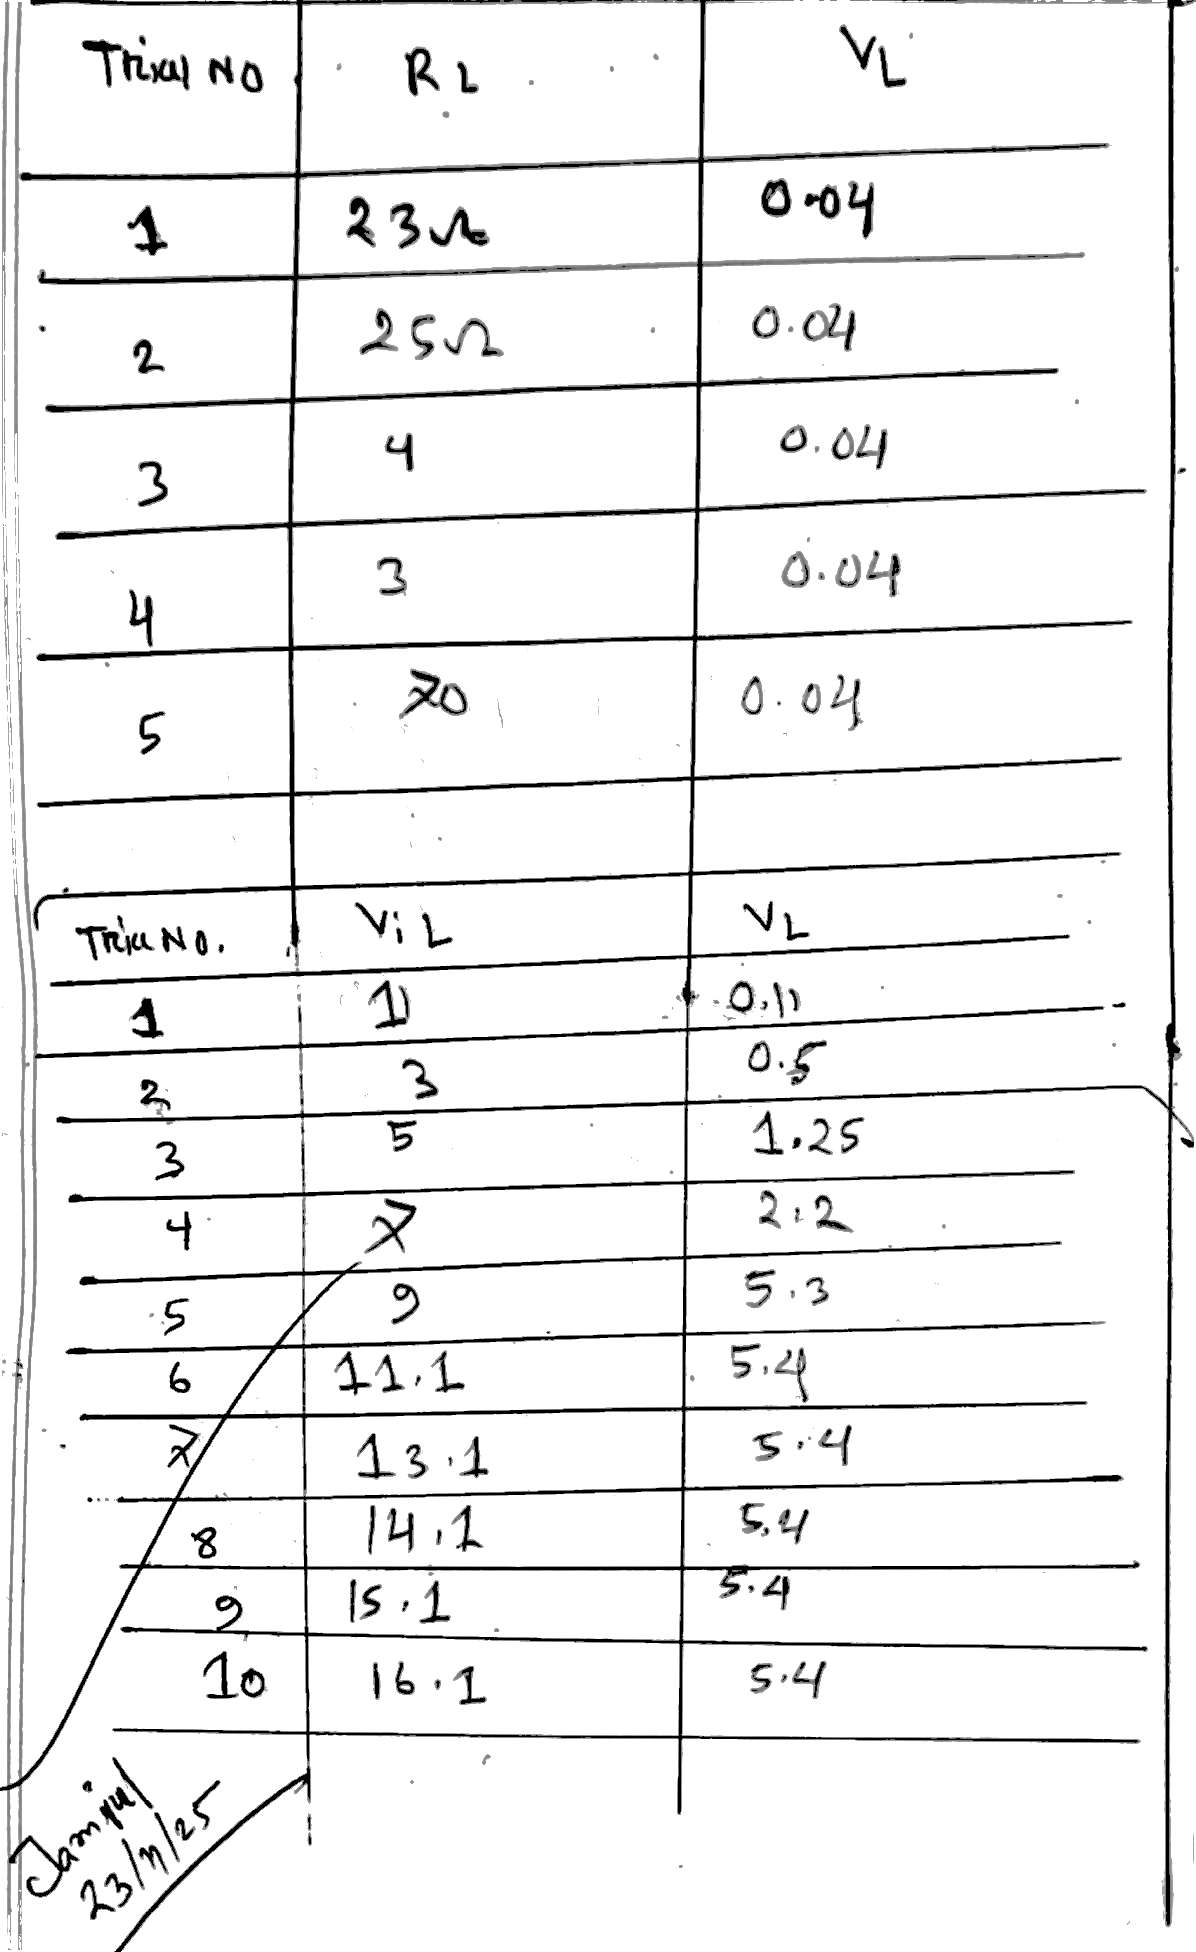 Trial NO RL VL
1 23Ω 0.04
2 25Ω 0.04
3 4 0.04
4 3 0.04
5 70 0.04
Trial No. ViL VL
1 1 0.11
2 3 0.5
3 5 1.25
4 7 2.2
5 9 5.3
6 11.1 5.4
7 13.1 5.4
8 14.1 5.4
9 15.1 5.4
10 16.1 5.4
23/11/25